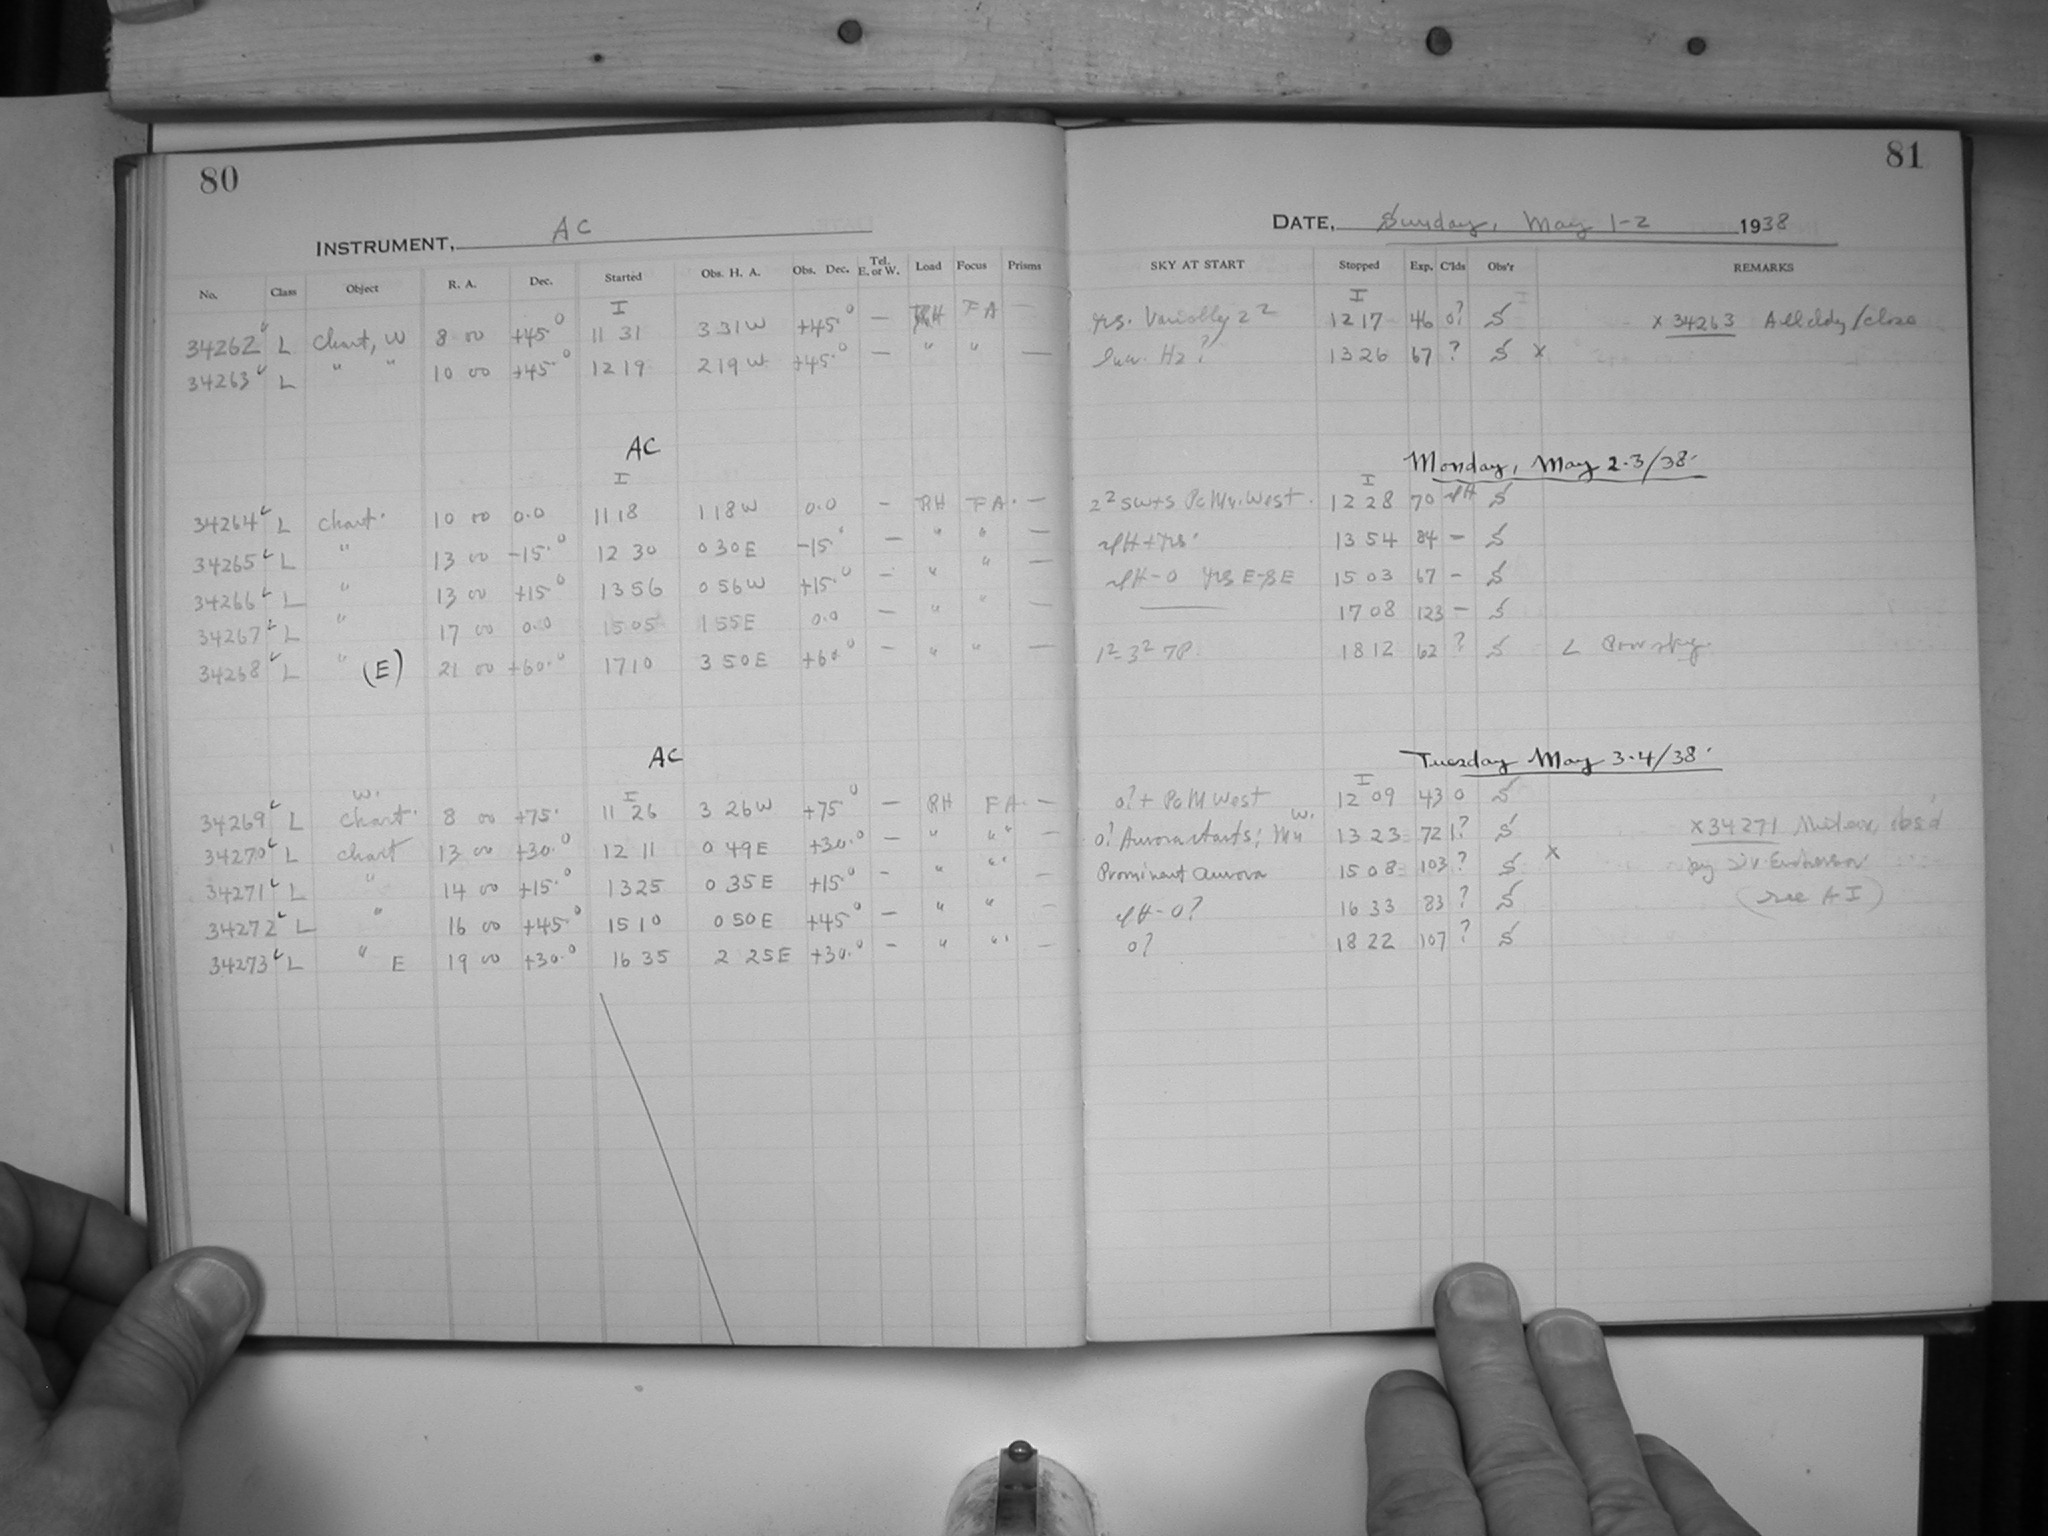 80
INSTRUMENT, AC
No. Class Object R. A. Dec. Started Obs. H. A. Obs. Dec. Tel. E. or W. Load Focus Prisms
I
34262 L Chart, W 8 00 +45.° 11 31 3 31 W +45.° — RH FA —
34263 L " " 10 00 +45.° 12 19 2 19 W +45.° — " " —
AC
I
34264 L Chart. 10 00 0.0 11 18 1 18 W 0.0 — RH FA. —
34265 L " 13 00 -15.° 12 30 0 30 E -15.° — " " —
34266 L " 13 00 +15.° 13 56 0 56 W +15.° — " " —
34267 L " 17 00 0.0 15 05 1 55 E 0.0 — " " —
34268 L " (E) 21 00 +60.° 17 10 3 50 E +60.° — " " —
AC
W. I
34269 L Chart. 8 00 +75. 11 26 3 26 W +75.° — RH FA. —
34270 L chart 13 00 +30.° 12 11 0 49 E +30.° — " " —
34271 L " 14 00 +15.° 13 25 0 35 E +15.° — " " —
34272 L " 16 00 +45.° 15 10 0 50 E +45.° — " " —
34273 L " E 19 00 +30.° 16 35 2 25 E +30.° — " " —
81
DATE, Sunday, May 1-2 1938
SKY AT START Stopped Exp. C'lds Obs'r REMARKS
I
Variably 2² 12 17 46 0? S x 34263 All cldy/close
H2? 13 26 67 ? S x
Monday, May 2.3/38.
I
2² SW+S West. 12 28 70 S
13 54 84 — S
E-SE 15 03 67 — S
17 08 123 — S
1²-3² 18 12 62 ? S L Poor sky.
Tuesday May 3.4/38.
I
0?+ West 12 09 43 0 S
0? Aurora starts; W. 13 23 72 1? S x 34271
Prominent aurora 15 08 103 ? S x by
-0? 16 33 83 ? S (see AI)
0? 18 22 107 ? S